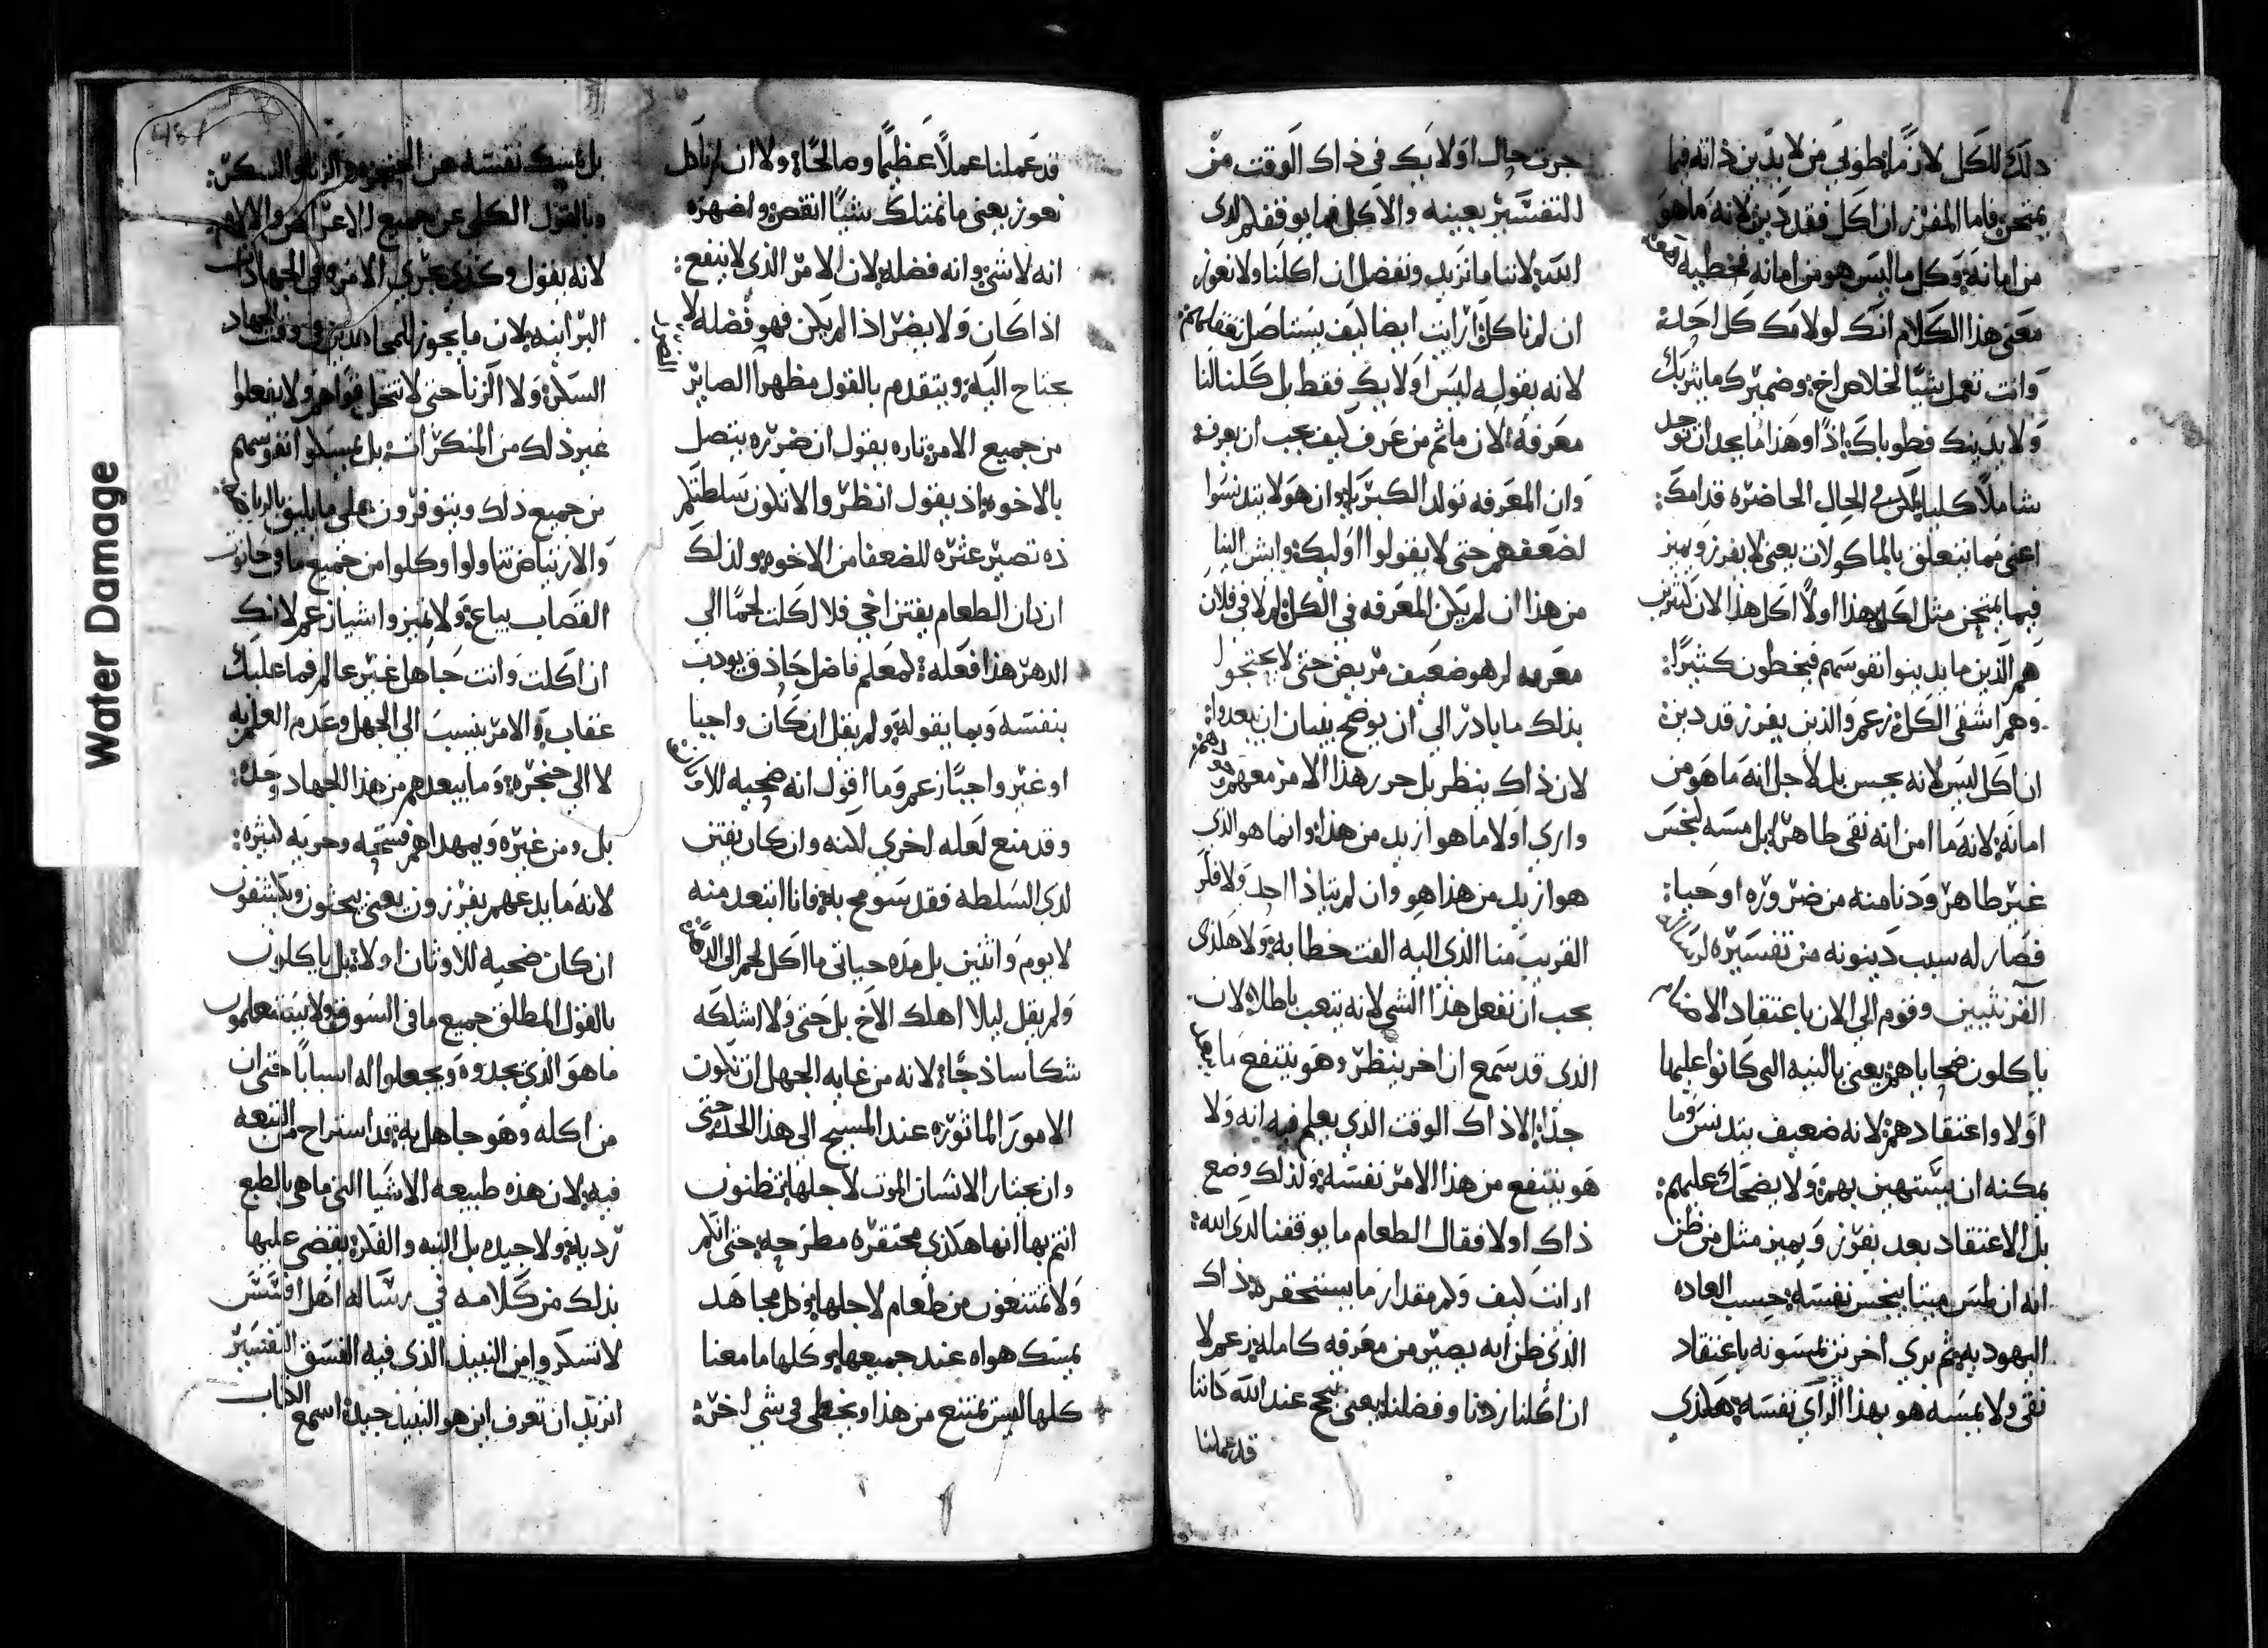 ذلك للكل لان ما طوبي من لا يدين ذاته فيما
يمتحن فاما المفرز ان اكل فقد دين لانه ما هو
من امانه وكل ما ليس هو من امانه فخطيه
معنى هذا الكلام انك لولامك كل احد
وانت تعمل شيًا لخلاص اخ وضميرك ما يثربك
ولا يدينك فطوباك اذًا وهذا ما يجد ان توجد
شاملا كليا لكن في الحال الحاضره قدامك
اعنى فيما يتعلق بالماكولات يعنى لا يفرز ويميز
فيما يمتحن مثل اكل هذا اولا اكل هذا لان كثيرين
هم الذين ما يدينوا نفوسهم فيخطون كثيرًا
وهم اشقى الكل زعم والذين يفرز قد دين
ان اكل ليس لانه نجس بل لاجل انه ما هو من
امانه لانه ما امن انه نقى طاهر بل مسه كنجس
غير طاهر ودنا منه من ضروره او حيا
فصار له سبب دينونه من تفسيره لرساله
القرنثيين وقوم الى الان باعتقاد الاصنام
ياكلون ضحاياهم يعنى بالنيه التى كانوا عليها
اولا واعتقادهم لانه ضعيف يتدنس وما
يمكنه ان يستهين بهم ولا يضحك عليهم
بل الاعتقاد بعد يفرز ويميز مثل من ظن
انه ان لمس ميتا ينجس نفسه حسب العاده
اليهوديه ثم يرى اخرين يلمسونه باعتقاد
نقى ولا يمسه هو بهذا الراى نفسه هكذى
جرت حال اوليك فى ذاك الوقت من
التفسير بعينه والاكل فما يوقفكم لدى
الله لاننا ما نزيد ونفضل ان اكلنا ولا نعوز
ان لم ناكل ارايت ايضا كيف يستاصل تعظمهم
لانه يقول ليس اوليك فقط بل كلنا لنا
معرفه لان ما ثم من عرف كيف يجب ان يعرف
وان المعرفه تولد الكبريا وان هولا يتدنسوا
لضعفهم حتى لا يقولوا اوليك وايش الينا
من هذا ان لم يكن المعرفه في الكل لم لا في فلان
معرفه لم هو ضعيف مريض حتى لا يحتجوا
بذلك ما بادر الى ان يوضح بنيان ان يبعدوا
لان ذاك ينظر بل حرر هذا الامر معهم
وارى اولا ما هو ازيد من هذا وانما هو الذى
هو ازيد من هذا هو وان لم يتاذا احد ولا فكر
القريب منا الذى اليه الفت خطابه ولا هكذى
يجب ان تفعل هذا الشي لانه يتعب باطلا لان
الذى قد سمع ان اخر ينظر وهو ينتفع ما يبعد
جدًا الا ذاك الوقت الذي يعلم فيه انه ولا
هو ينتفع من هذا الامر نفسه ولذلك وضع
ذاك اولا فقال الطعام ما يوقفنا لدى الله
ارانت كيف وكم مقدار ما يستحقر ذاك
الذي ظن انه يصير من معرفه كامله زعم لا
ان اكلنا زدنا وفضلنا يعنى ننجح عند الله كاننا
قد عملنا
قد عملنا عملاً عظيمًا وصالحًا ولا ان لم ناكل
نعوز يعنى ما نمتلك شيًا انقص واضهره
انه لا شي وانه فضله لان الامر الذى لا ينفع
اذا كان ولا يضر اذا لم يكن فهو فضله لا
يحتاح اليه ويتقدم بالقول مظهرا الصاير
من جميع الامر تاره يقول ان ضرره يتصل
بالاخوه اذ يقول انظر والا تكون سلطتكم
ذه تصير عثره للضعفا من الاخوه ولذلك
ان كان الطعام يفتن اخي فلا اكلت لحمًا الى
الدهر هذا فعله لمعلم فاضل حاذق يودب
بنفسه وبما يقوله ولم يقل ان كان واجبا
او غير واجبًا زعم وما اقول انه ضحيه الاوثان
وقد منع لعله اخرى لكنه وان كان يفتن
لدى السلطه فقد سومح به فانا ابتعد منه
لا يوم واثنين بل مده حياتى ما اكل لحم الى الدهر
ولم يقل ليلا اهلك الاخ بل حتى ولا اشككه
شكا ساذجًا لانه من غايه الجهل ان تكون
الامور الماثوره عند المسيح الى هذا الحد حتى
وان يختار الانسان الموت لاجلها تظنون
انتم بها انها هكذى محتقره مطرحه حتى انكم
ولا تمتنعون من طعام لاجلها وكل مجاهد
يمسك هواه عند جميعها وكلها ما معنا
كلها ليس يمتنع من هذا ويخطى فى شي اخر
بل يمسك نفسه عن الحنجره والزنا والسكر
وبالقول الكلى عن جميع الاعراض والالام
لانه يقول وكذى يجرى الامر وفى الجهادات
البرانيه لان ما يجوز للمجاهدين فى وقت الجهاد
السكر ولا الزنا حتى لا تنحل قواهم ولا يفعلوا
غير ذلك من المنكرات بل يمسكوا نفوسهم
من جميع ذلك ويتوفرون على ما يليق بالرياضه
والارتياض تناولوا وكلوا من جميع ما فى حانوت
القصاب يباع ولا تميزوا شيا زعم لانك
ان اكلت وانت جاهل غير عالم فما عليك
عقاب والامر ينسب الى الجهل وعدم العلم به
لا الى حنجره وما يبعدهم من هذا الجهاد وحده
بل ومن غيره ويمهد لهم فسحه وحريه كثيره
لانه ما يدعهم يفرزون يعنى يبحثون ويكتشفون
ان كان ضحيه للاوثان اولا بل ياكلون
بالقول المطلق جميع ما فى السوق ولا يستعلمون
ما هو الذي يجدوه ويجعلوا له اسبابًا حتى ان
من اكله وهو جاهل به قد استراح من التبعه
فيه لان هذه طبيعه الاشيا التى ما هى بالطبع
رديه ولا جيده بل النيه والفكر يقضى عليها
بذلك من كلامه في رساله اهل افسس
لا تسكروا من النبيذ الذى فيه الفسق التفسير
اتريد ان تعرف اين هو النبيذ جيد اسمع الكتاب